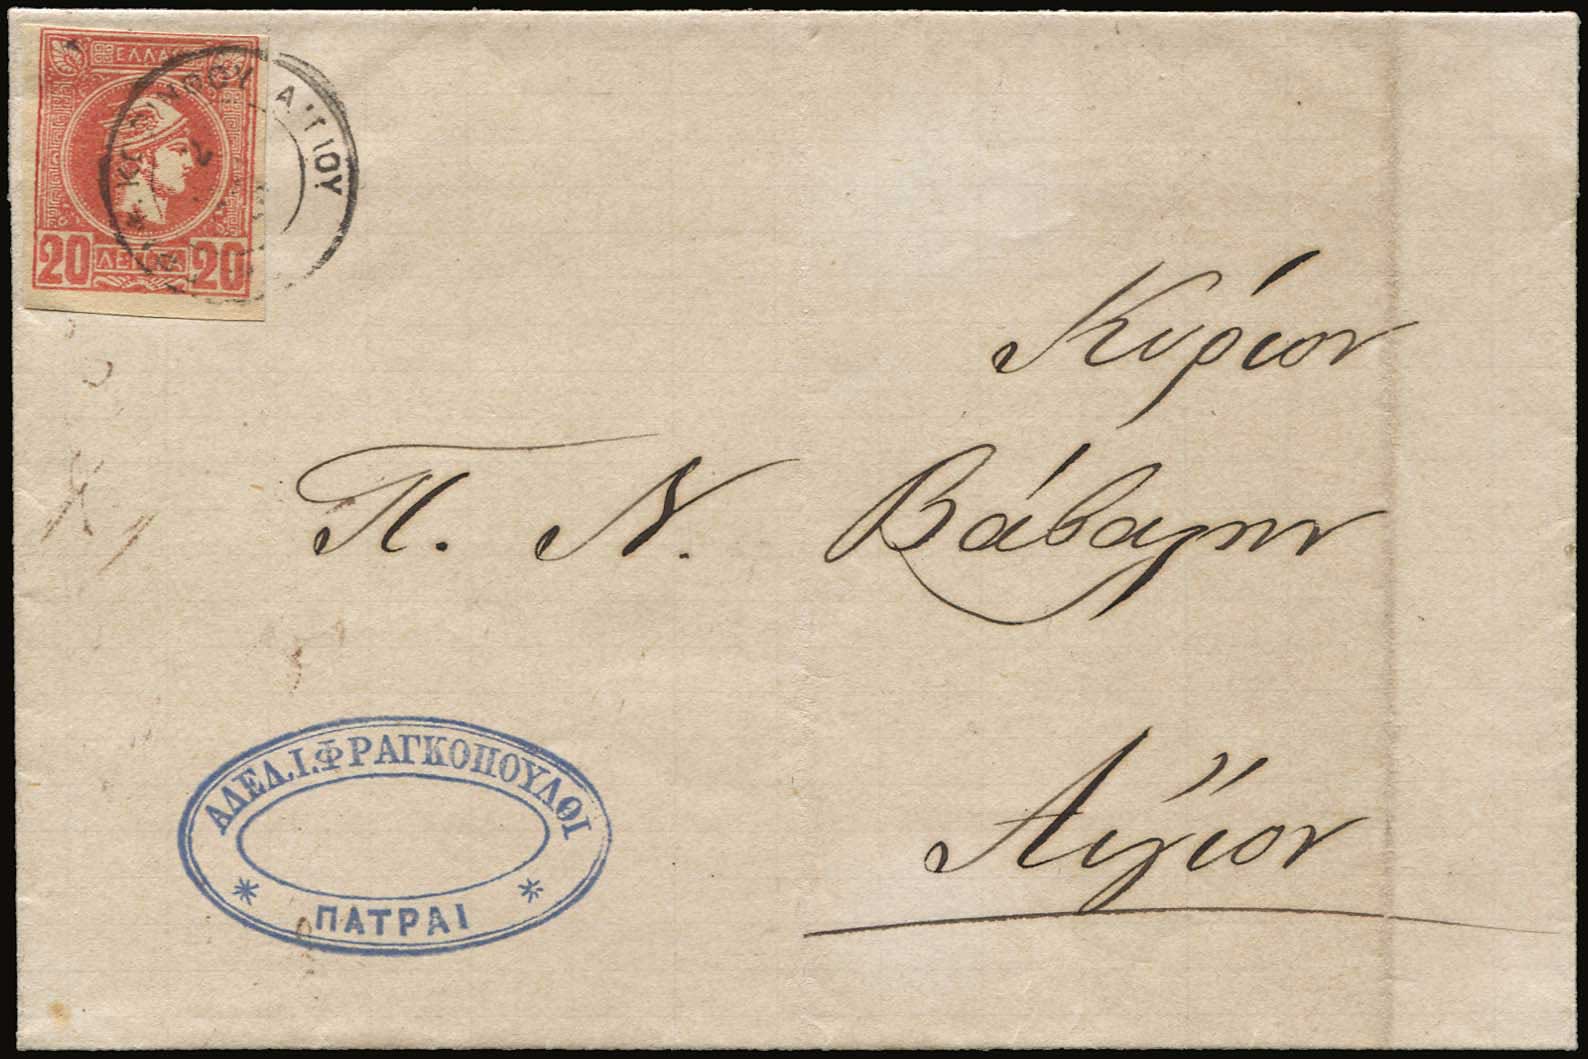 ΕΛΛΑΣ
20 ΛΕΠΤΑ 20
ΑΙΓΙΟΥ
2
Κύριον
Π. Ν. Βάβαλην
Αἴγιον
ΑΔΕΛ. Ι. ΦΡΑΓΚΟΠΟΥΛΟΙ
ΠΑΤΡΑΙ